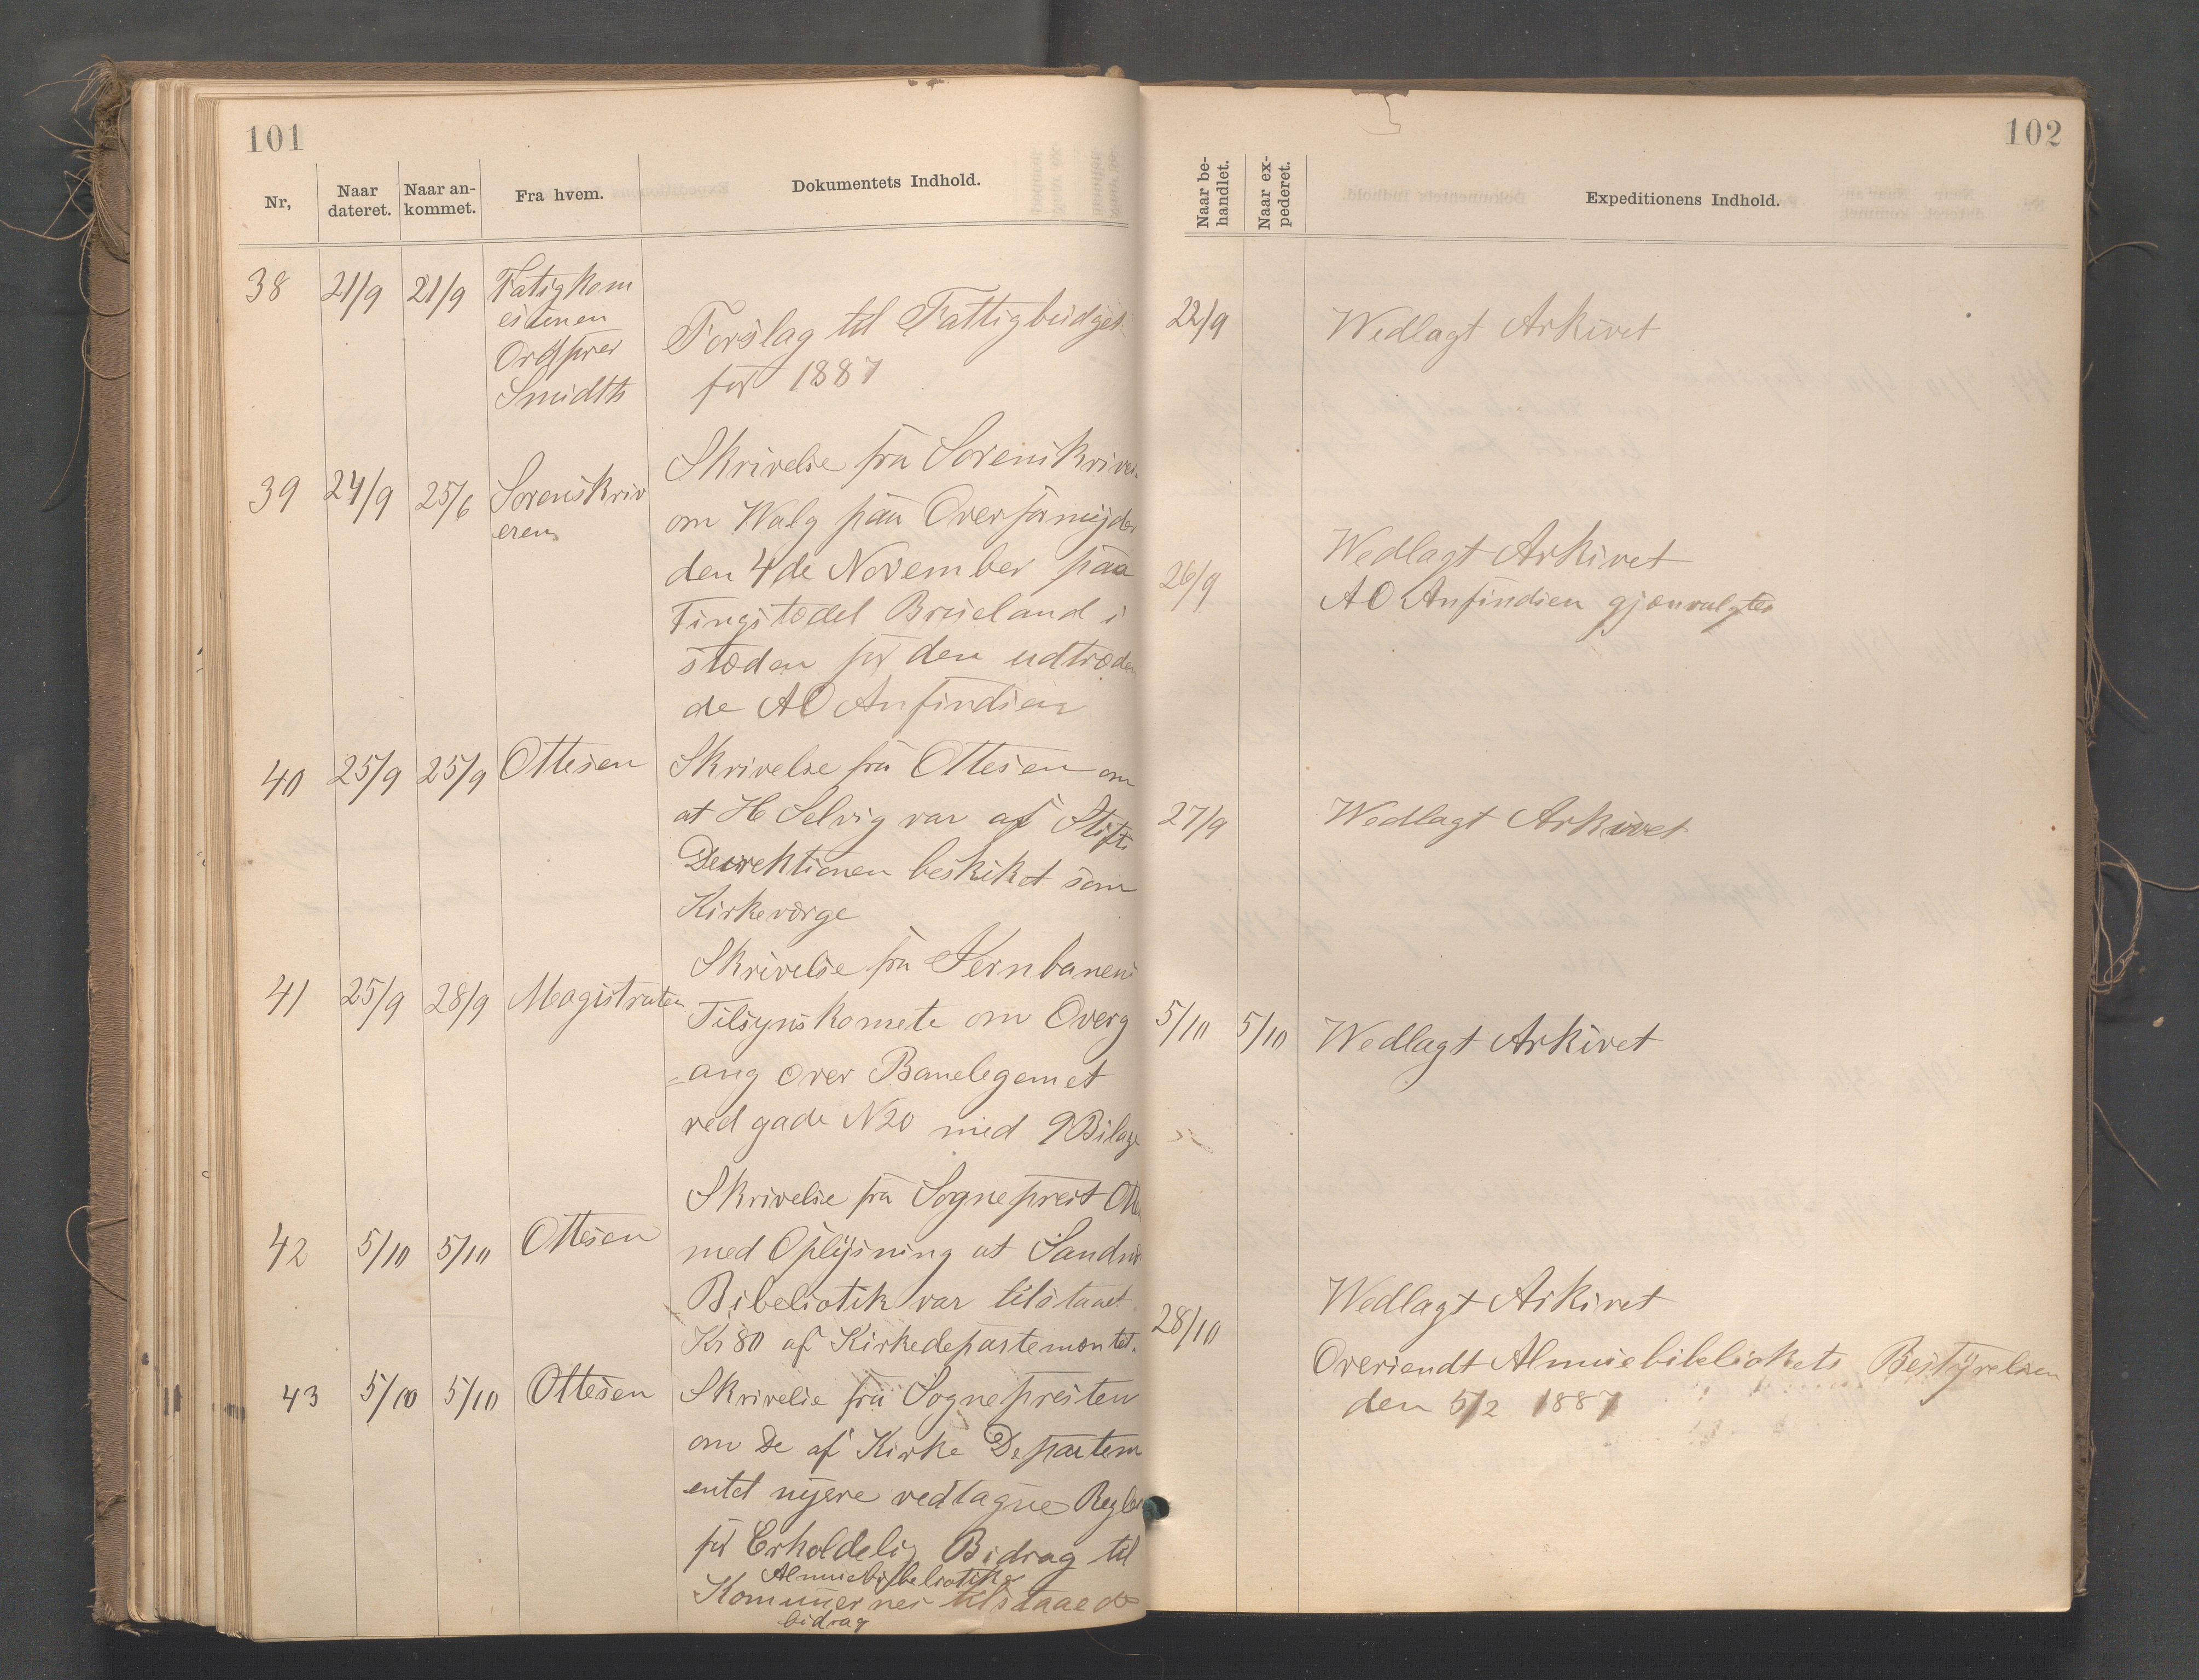 101
Nr,
Naar dateret.
Naar an-kommet.
Fra hvem.
Dokumentets Indhold.
38 21/9 21/9 Fatigkom
esionen
Ordfører
Smidth
Forslag til Fattigbudget
for 1887
39 24/9 25/6 Sorenskriv
eren
Skrivelse fra Sorenskriver
om Walg paa Overformynder
den 4de November paa
Tingstedet Brueland i
støden for den udtræden
de AO Anfindsen
40 25/9 25/9 Ottesen
Skrivelse fra Ottesen om
at H Selvig var af Stifts
Direktionen beskiket som
Kirkeværge
41 25/9 28/9 Magistraten
Skrivelse fra Jernbanens
Tilsynskomete om Overg
ang over Banelegemet
ved gade N20 med 9 Bilage
42 5/10 5/10 Ottesen
Skrivelse fra Sogneprest Otte
med Oplysning at
Bibeliotik var tilstaaet
Kr 80 af Kirkedepartementet.
43 5/10 5/10 Ottesen
Skrivelse fra Sognepresten
om De af Kirke Departem
entet nyere vedtagne Regler
for Erholdelig Bidrag til
Almuebibeliotike
Kommunernes tilstaaede
bidrag
102
Naar be-handlet.
Naar ex-pederet.
Expeditionens Indhold.
22/9 Wedlagt Arkivet
26/9 Wedlagt Arkivet
AO Anfindsen gjenvalgtes
27/9 Wedlagt Arkivet
5/10 5/10 Wedlagt Arkivet
28/10 Wedlagt Arkivet
Oversendt Almuebibeliokets Bestyrelsen
den 5/2 1887